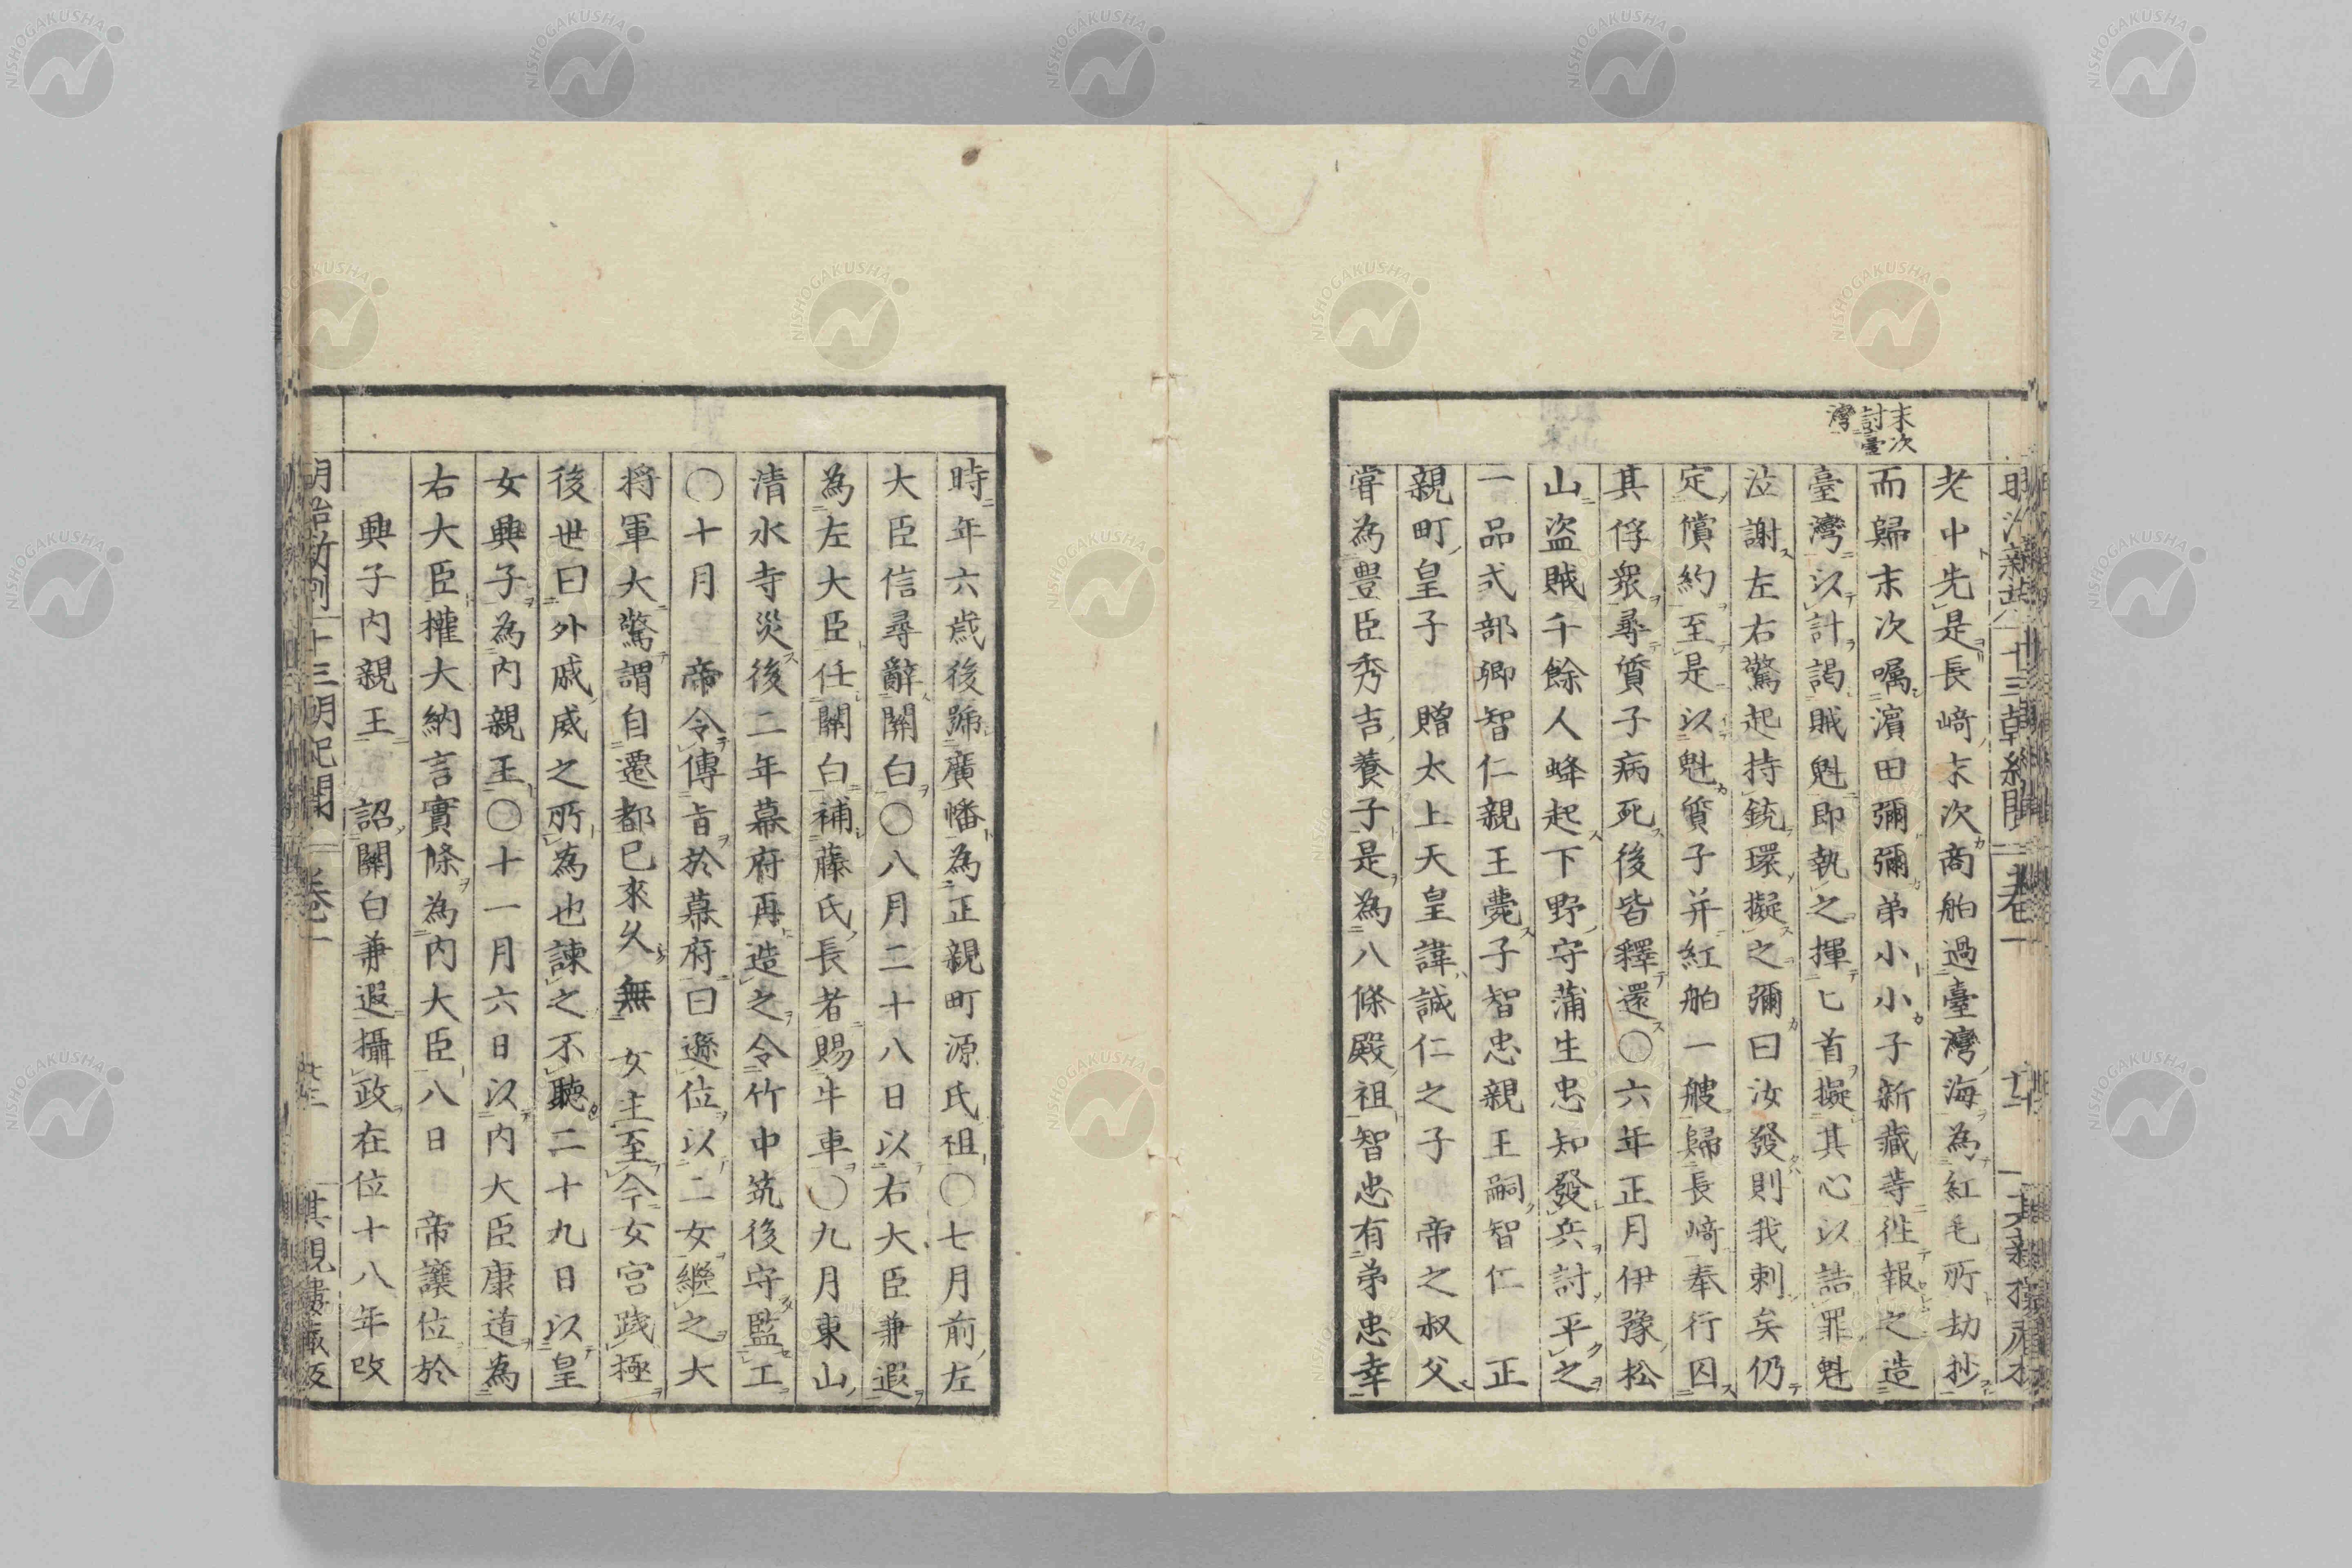 末次
討臺
灣
老中先是長﨑末次商舶過臺灣海為紅毛所劫抄
而歸末次囑濵田彌彌弟小小子新藏等徃報之造
臺灣以計謁賊魁即執之揮匕首擬其心以詰罪魁
泣謝左右驚起持銃環擬之彌曰汝發則我刺矣仍
定償約至是以魁質子并紅舶一艘歸長﨑奉行囚
其俘衆尋質子病死後皆釋還〇六年正月伊豫松
山盜賊千餘人蜂起下野守蒲生忠知發兵討平之
一品式部卿智仁親王薨子智忠親王嗣智仁　正
親町皇子　贈太上天皇諱誠仁之子　帝之叔父
嘗為豐臣秀吉養子是為八條殿祖智忠有弟忠幸
時年六歳後號廣幡為正親町源氏祖〇七月前左
大臣信尋辭關白〇八月二十八日以右大臣兼遐
為左大臣任關白補藤氏長者賜牛車〇九月東山
清水寺災後二年幕府再造之令竹中筑後守監工
〇十月　帝令傳旨於幕府曰遜位以二女繼之大
將軍大驚謂自遷都已來久無女主至今女宮踐極
後世曰外戚威之所為也諫之不聽二十九日以皇
女興子為内親王〇十一月六日以内大臣康道為
右大臣權大納言實條為内大臣八日　帝讓位於
興子内親王　詔關白兼遐攝政在位十八年改